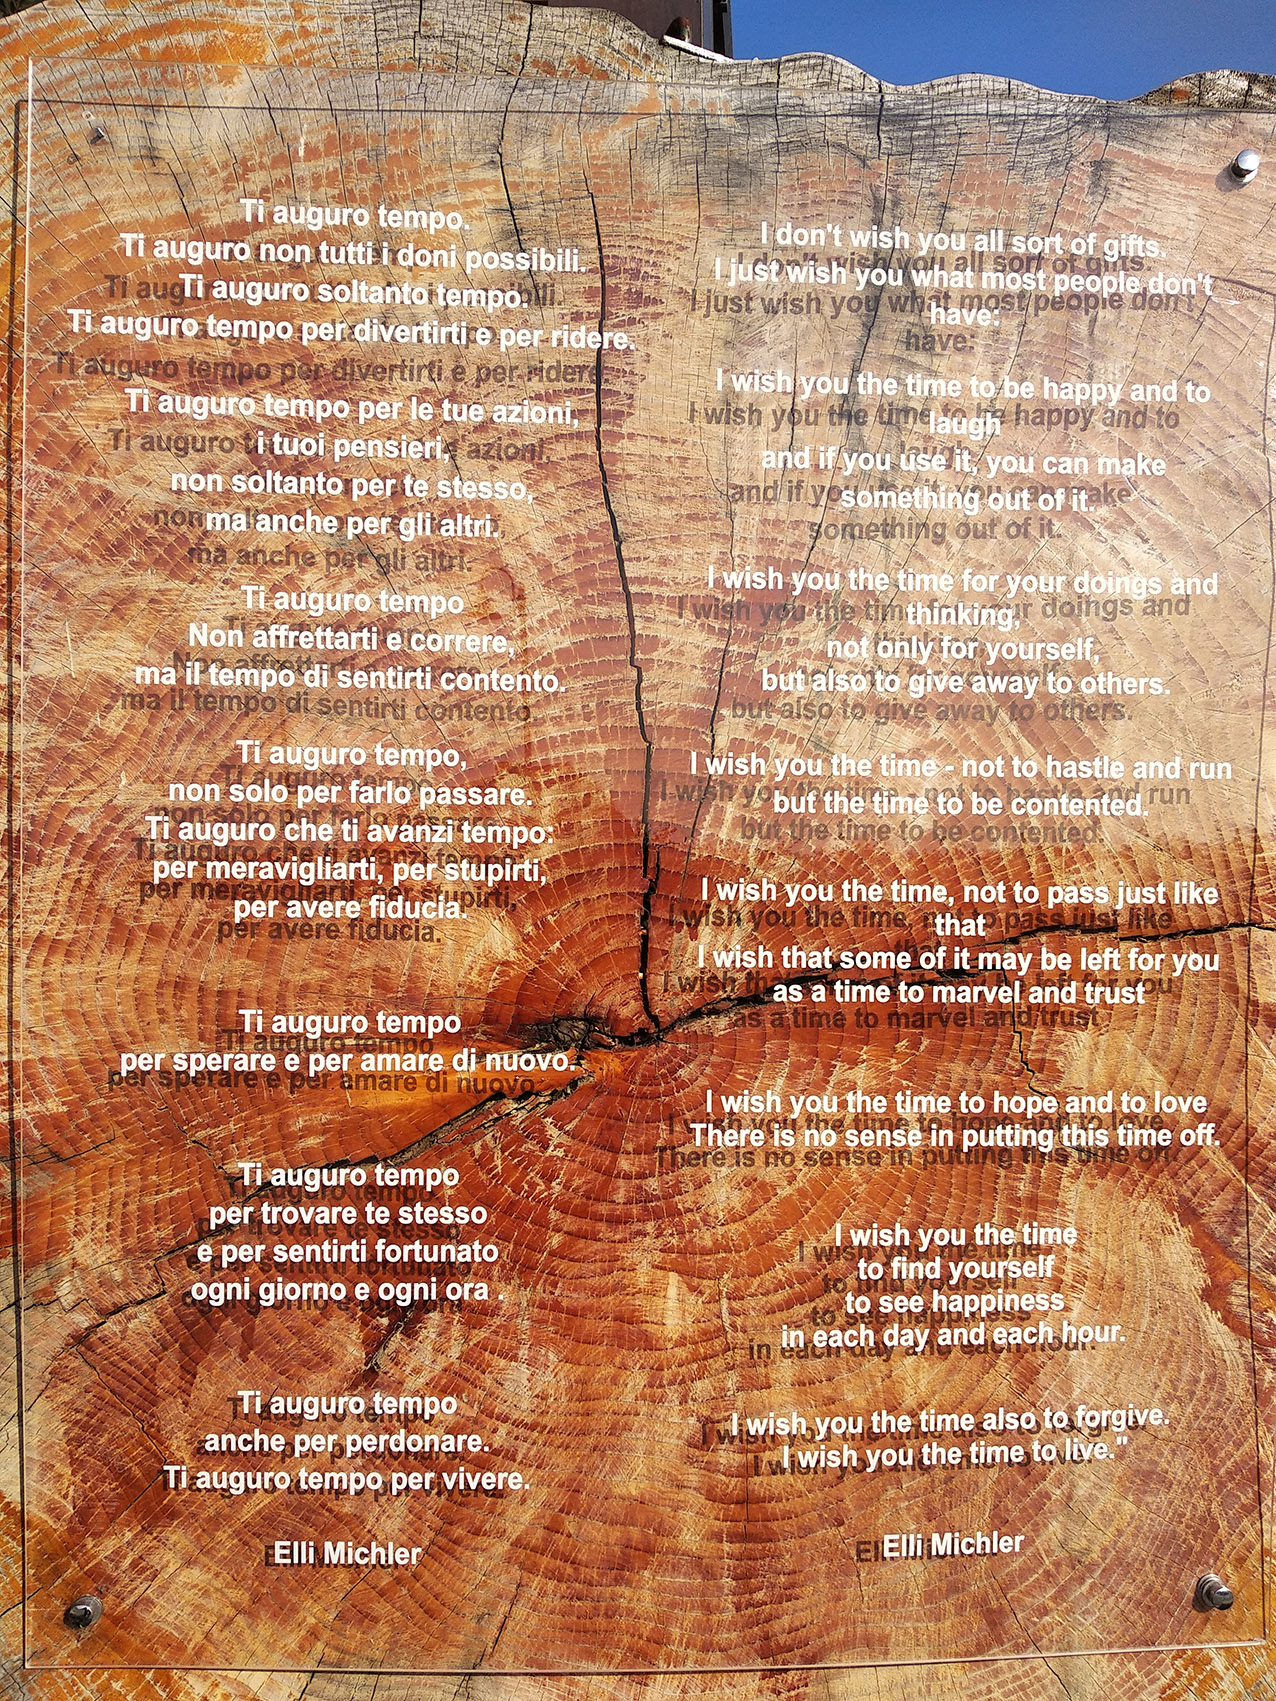 Ti auguro tempo.
Ti auguro non tutti i doni possibili.
Ti auguro soltanto tempo.
Ti auguro tempo per divertirti e per ridere.
Ti auguro tempo per le tue azioni,
i tuoi pensieri,
non soltanto per te stesso,
ma anche per gli altri.
Ti auguro tempo
Non affrettarti e correre,
ma il tempo di sentirti contento.
Ti auguro tempo,
non solo per farlo passare.
Ti auguro che ti avanzi tempo:
per meravigliarti, per stupirti,
per avere fiducia.
Ti auguro tempo
per sperare e per amare di nuovo.
Ti auguro tempo
per trovare te stesso
e per sentirti fortunato
ogni giorno e ogni ora .
Ti auguro tempo
anche per perdonare.
Ti auguro tempo per vivere.
Elli Michler
I don't wish you all sort of gifts.
I just wish you what most people don't
have:
I wish you the time to be happy and to
laugh
and if you use it, you can make
something out of it.
I wish you the time for your doings and
thinking,
not only for yourself,
but also to give away to others.
I wish you the time - not to hastle and run
but the time to be contented.
I wish you the time, not to pass just like
that
I wish that some of it may be left for you
as a time to marvel and trust
I wish you the time to hope and to love
There is no sense in putting this time off.
I wish you the time
to find yourself
to see happiness
in each day and each hour.
I wish you the time also to forgive.
I wish you the time to live."
Elli Michler